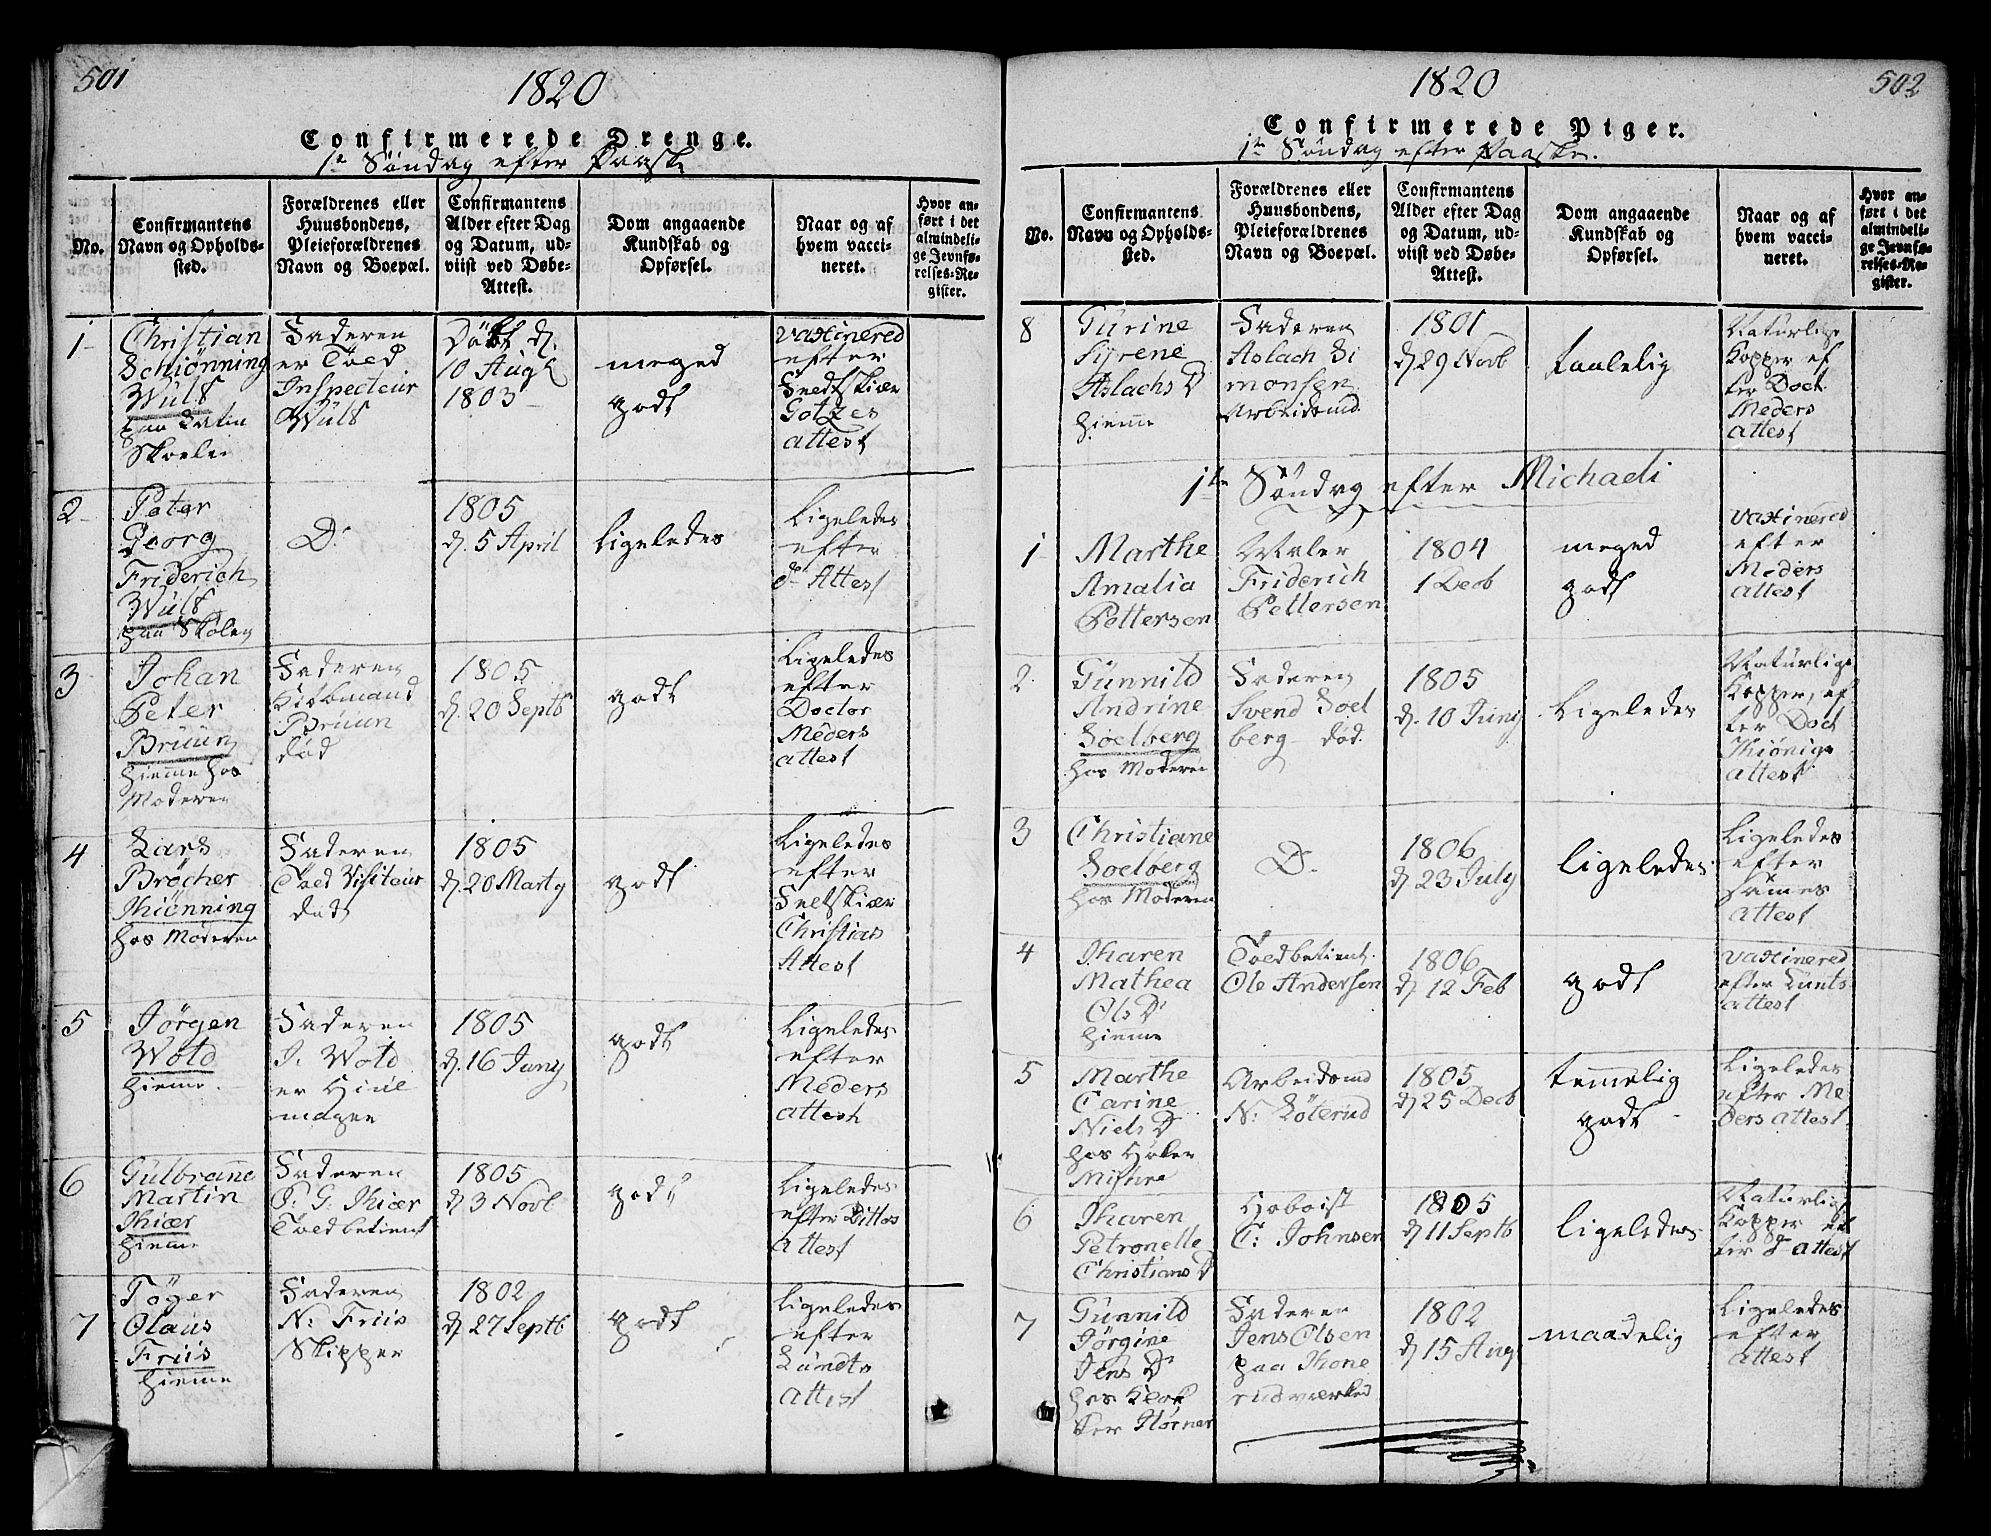 501
1820
Confirmerede Drenge.
1te Søndag efter Paaske
No.
Confirmantens
Navn og Opholds-
sted.
Forældrenes eller
Huusbondens,
Pleieforældrenes
Navn og Boepæl.
Confirmantens
Alder efter Dag
og Datum, ud-
viist ved Døbe-
Attest.
Dom angaaende
Kundskab og
Opførsel.
Naar og af
hvem vacci-
neret.
Hvor an-
ført i det
almindeli-
ge Jevnfø-
relses-Re-
gister.
1
Christian
Schiønning
Wulf
paa Latin
Skoele
Faderen
er Toed
Inspecteur
Wulf
Døbt d.
10 Augt
1803
meged
godt
vaxinered
efter
Snedskiær
Gotzes
attest
2
Peter
Georg
Friderich
Wulf
paa Skolen
D.
1805
d. 5 April
Ligeledes
Ligeledes
efter
do Attest
3
Johan
Peter
Bruun
hiemme hos
Moderen
Faderen
Kiøbmand
Bruun
død
1805
d. 20 Septb
godt
Ligeledes
efter
Doctor
Meders
attest
4
Lars
Brøcher
Kiønning
hos Moderen
Faderen
Toed Visiteur
død
1805
d. 20 Marty
godt
Ligeledes
efter
Snetskiær
Christias
Attest
5
Jørgen
Wold
hiemme.
Faderen
J. Wold
er Hiul
mager
1805
d. 16 Juny
godt
Ligeledes
efter
Meders
attest
6
Gulbranne
Martin
Kiær
hiemme
Faderen
P. G. Kiær
Toedbetient
1805
d 3 Novb
godt
Ligeledes
efter Dittos
attest
7
Töger
Olaus
Friis
hiemme
Faderen
N. Friis
Skipper
1802
d. 27 Septb
godt
Ligeledes
efter
Lundts
attest
502
1820
Confirmerede Piger.
1te Søndag efter Paaske.
No.
Confirmantens
Navn og Opholds-
sted.
Forældrenes eller
Huusbondens,
Pleieforældrenes
Navn og Boepæl.
Confirmantens
Alder efter Dag
og Datum, ud-
viist ved Døbe-
Attest.
Dom angaaende
Kundskab og
Opførsel.
Naar og af
hvem vacci-
neret.
Hvor an-
ført i det
almindeli-
ge Jevnfø-
relses-Re-
gister.
8
Gurine
Syrene
Aslachs D
hiemme
Faderen
Aslach Si
monsen
Arbeidsmd
1801
d 29 Novb
taalelig
Naturlige
Kopper ef
ter Doct
Meders
attest
1te Søndag efter Michaeli
1
Marthe
Amalia
Pettersen
Maler
Friderich
Pettersen
1804
1 Decb
meged
godt
vaxinered
efter
Meders
attest
2
Gunnild
Andrine
Soelberg
hos Moderen
Faderen
Svend Soel
berg død.
1805
d. 10 Juny
Ligeledes
Naturlige
Kopper, ef
ter Doct
Kiønigs
attest
3
Christiane
Soelberg
hos Moderen
D.
1806
d 23 July
ligeledes
Ligeledes
efter
sames
attest
4
Karen
Mathea
Ols D
hiemme
Toedbetient
Ole Andersen
1806
d 12 Feb
godt
vaxinered
efter Lunts
attest
5
Marthe
Carine
Niels D
hos Høker
Arbeidsmd
N.
1805
d 25 Decb
temmelig
godt
Ligeledes
efter Me
ders attest
6
Karen
Petronelle
Christians D
Hoboist
C. Johnsen
1805
d 11 Septb
ligeledes
Naturlige
Kopper ef
ter D attest
7
Gunnild
Jørgine
Jens D
hos Klok
ker Størner
Faderen
Jens Olsen
paa
1802
d 15 Aug
maadelig
Ligeledes
efter
attest